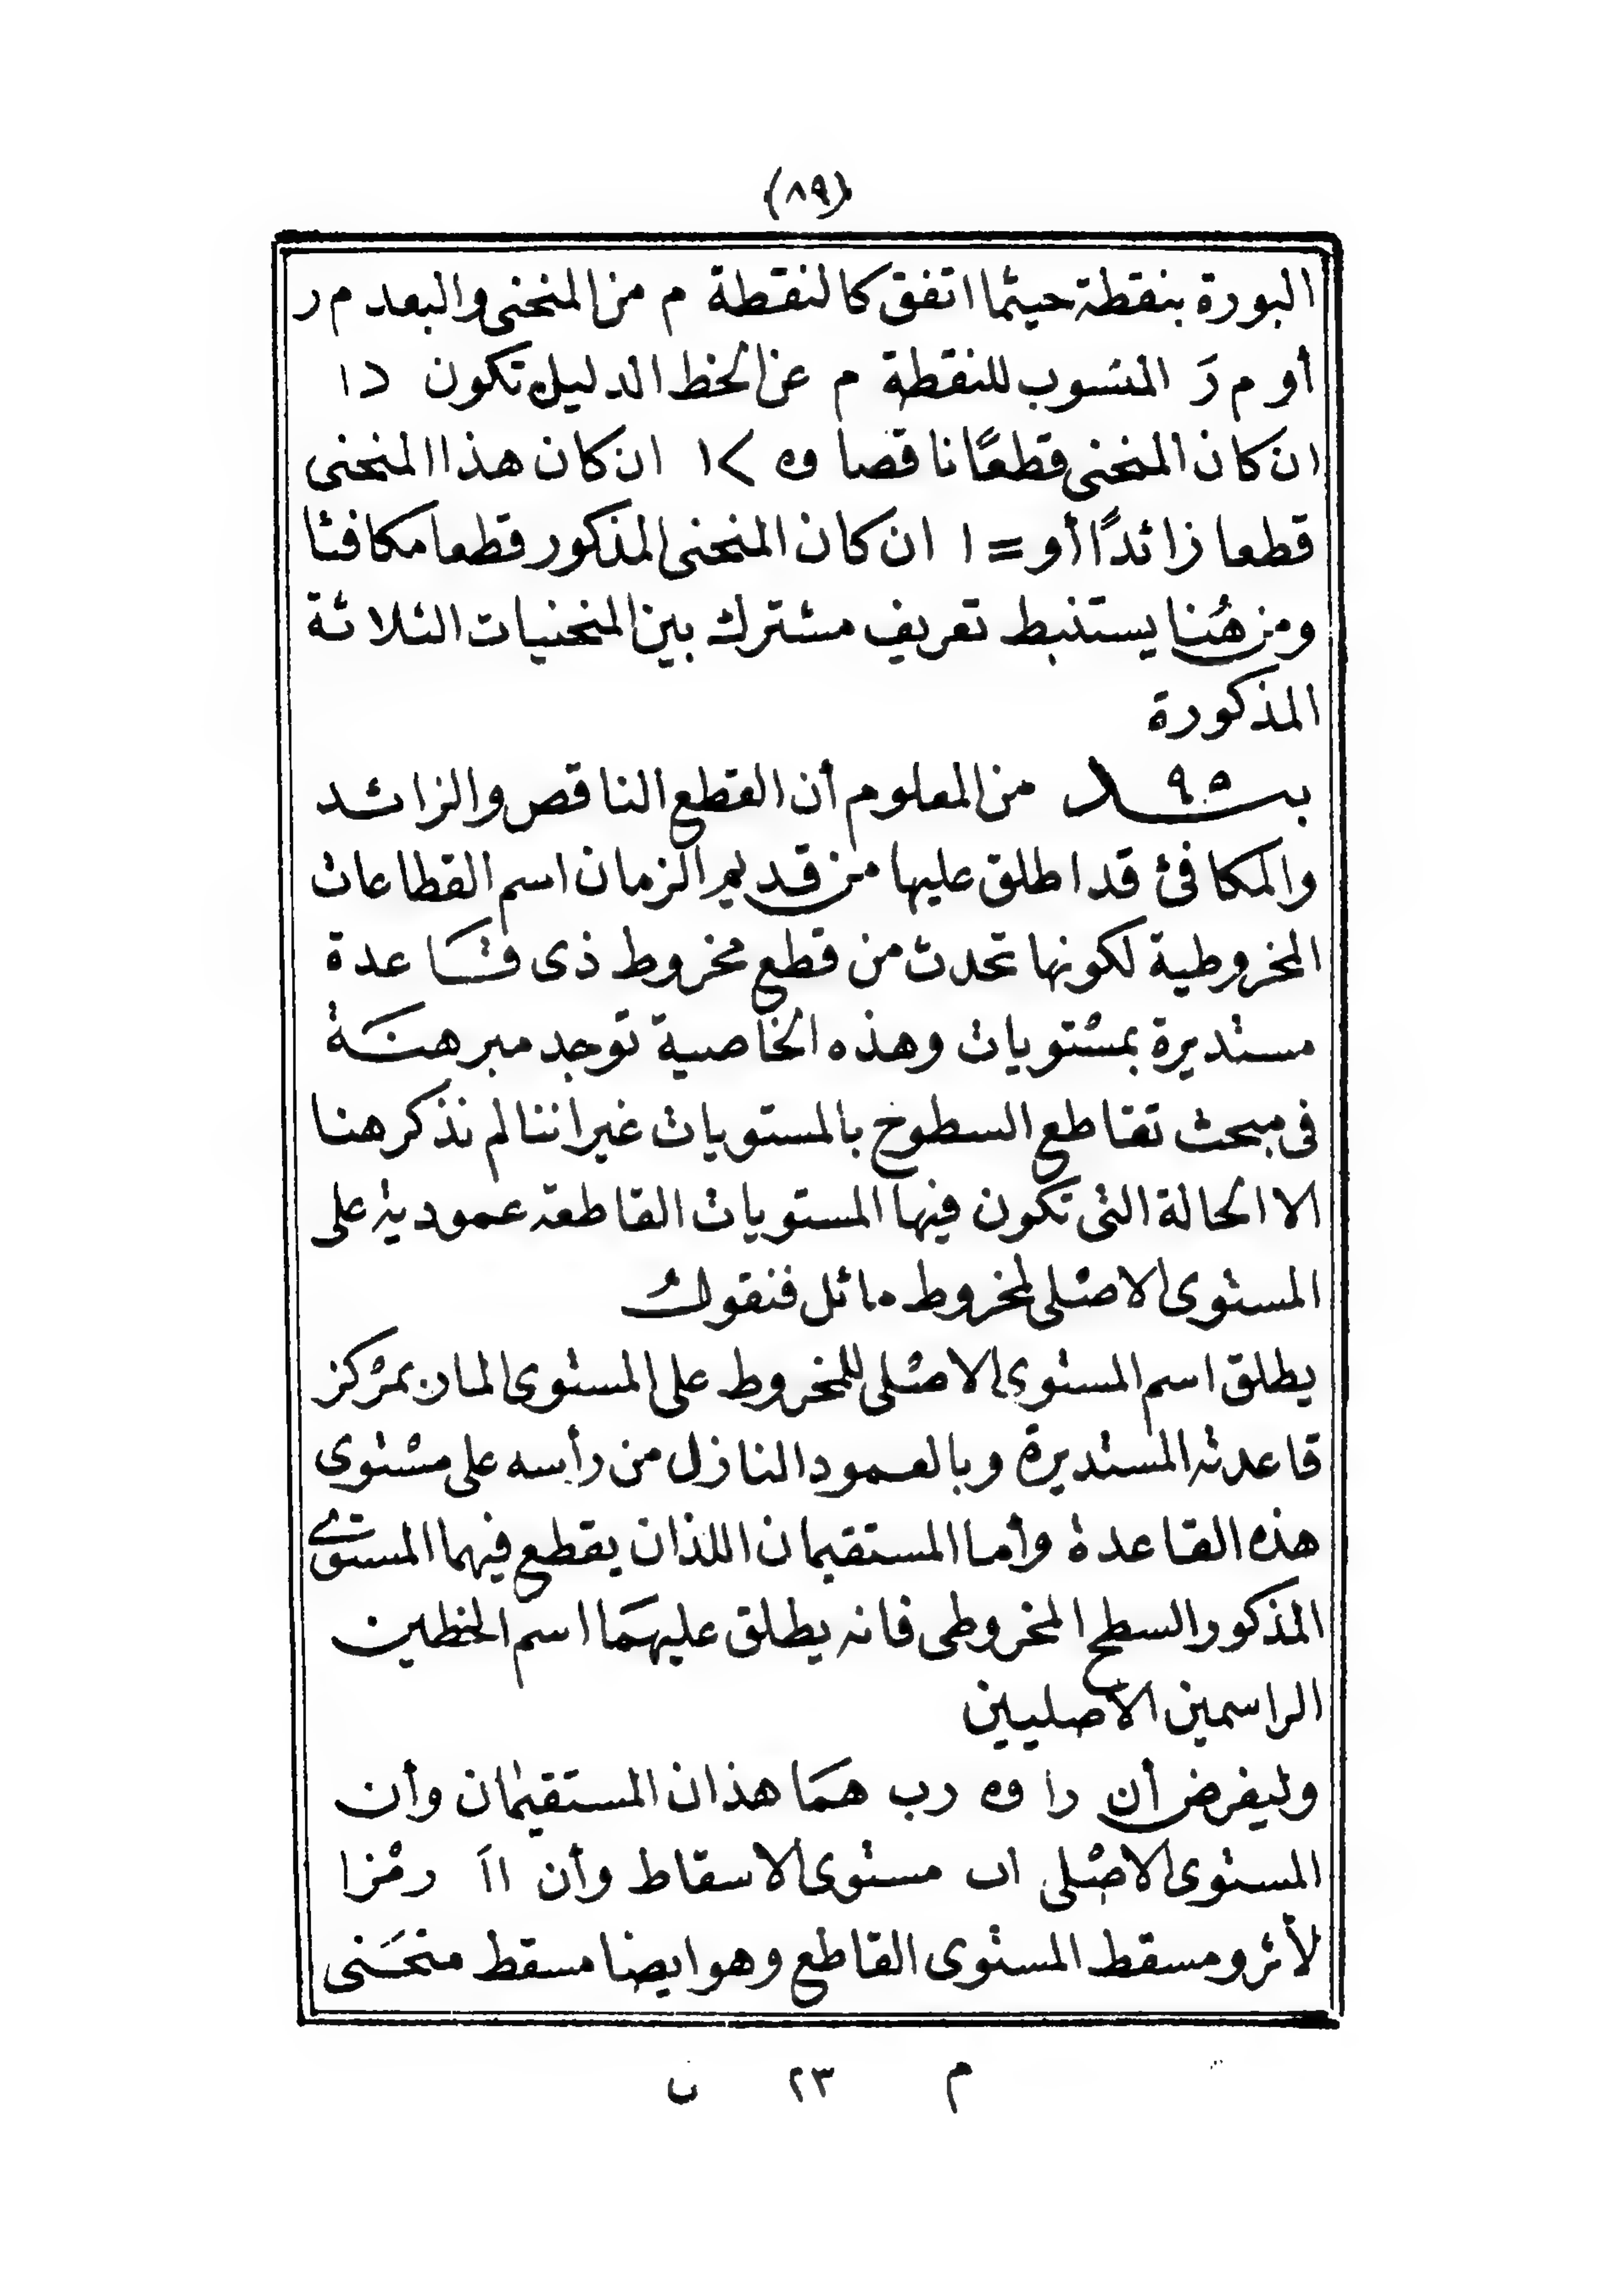 (٨٩)
البورة بنقطة حيثما اتفق كالنقطة م من المنحنى والبعد م ر
أو م رَ المنسوب للنقطة م عن الخط الدليل تكون > ١
ان كان المنحنى قطعًا ناقصا و < ١ ان كان هذا المنحنى
قطعا زائدًا أو = ١ ان كان المنحنى المذكور قطعا مكافئا
ومن هُنا يستنبط تعريف مشترك بين المنحنيات الثلاثة
المذكورة
بند ٩٥ من المعلوم أن القطع الناقص والزائد
والمكافئ قد اطلق عليها من قديم الزمان اسم القطاعات
المخروطية لكونها تحدث من قطع مخروط ذى قاعدة
مستديرة بمستويات وهذه الخاصية توجد مبرهنة
فى مبحث تقاطع السطوح بالمستويات غير اننا لم نذكر هنا
الا الحالة التى تكون فيها المستويات القاطعة عمودية على
المستوى الاصلى لمخروط مائل فنقول
يطلق اسم المستوى الاصلى للمخروط على المستوى المار بمركز
قاعدته المستديرة وبالعمود النازل من رأسه على مستوى
هذه القاعدة وأما المستقيمان اللذان يقطع فيهما المستوى
المذكور السطح المخروطى فانه يطلق عليهما اسم الخطين
الراسمين الاصليين
وليفرض أن را و رب هما هذان المستقيمان وأن
المستوى الاصلى اب مستوى الاسقاط وأن ااَ رمزا
لأثر ومسقط المستوى القاطع وهو ايضا مسقط منحنى
م ٢٣ ب